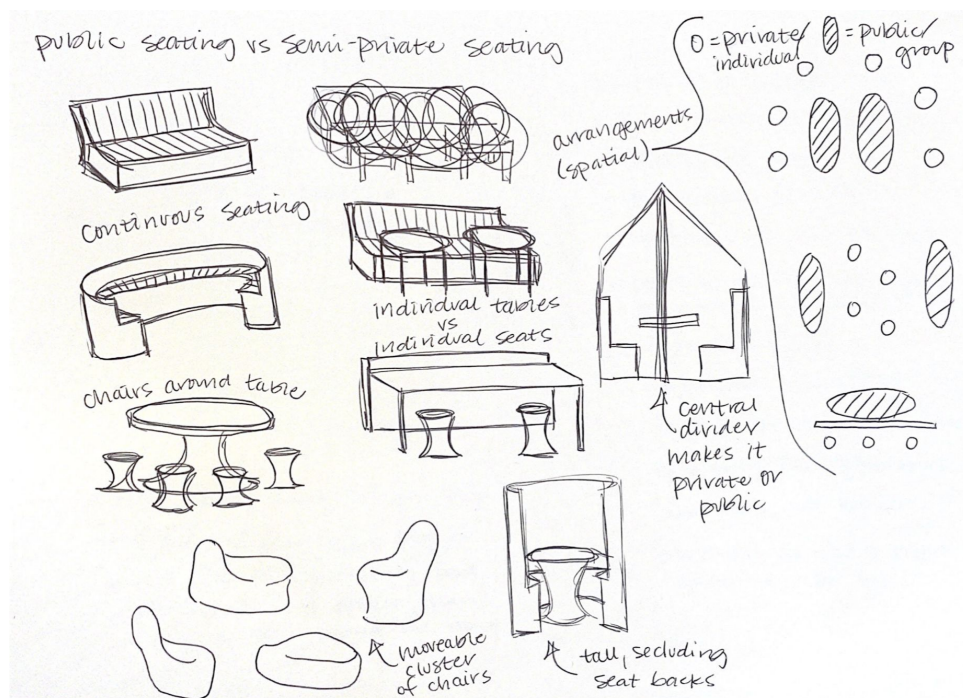 public seating vs semi-private seating
O = private/
individual
= public/
group
arrangements
(spatial)
continuous seating
individual tables
vs
individual seats
chairs around table
central
divider
makes it
private or
public
moveable
cluster
of chairs
tall, secluding
seat backs